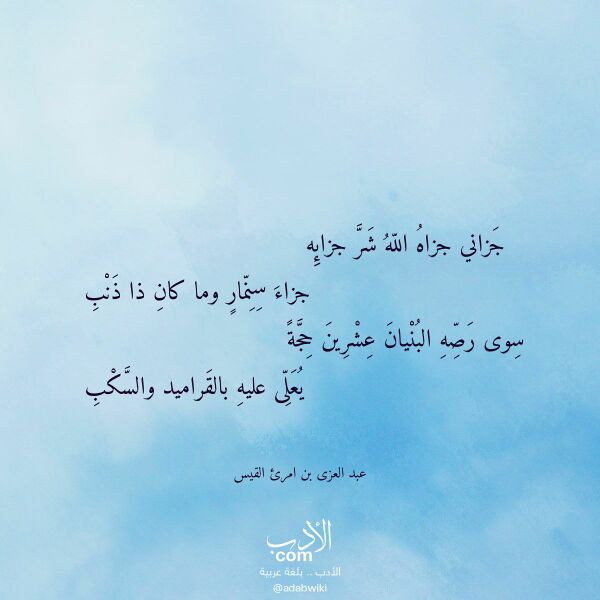 جَزاني جزاهُ اللّهُ شَرَّ جزائِه
جزاءَ سِنِمّارٍ وما كانِ ذا ذَنْبِ
سِوى رَصِّهِ البُنْيانَ عِشْرِينَ حِجَّةً
يُعَلّى عليهِ بالقَراميد والسَّكْبِ
عبد العزى بن امرئ القيس
الأدب
com
الأدب .. بلغة عربية
@adabwiki